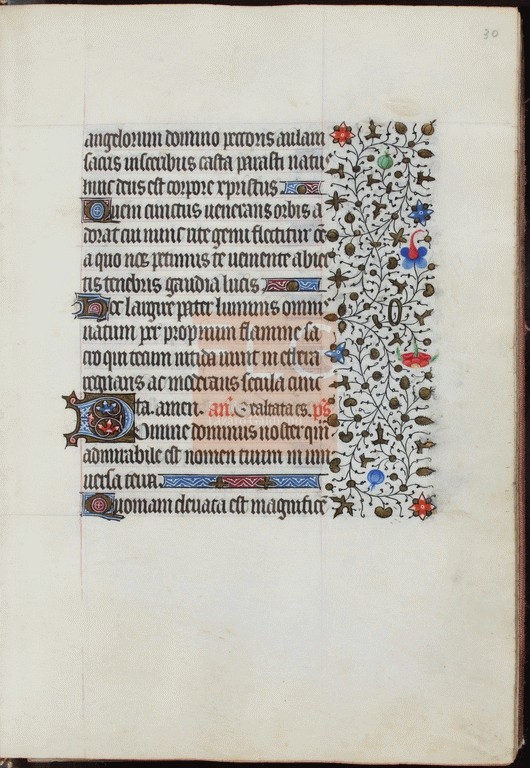 30
angelorum domino pectoris aulam
sacris insceribus casta parasti natus
huic deus est corpore xpristus
Quem cunctus uenerans orbis a
dorat cui nunc rite genu flectitur ce
a quo nos petimus te ueniente abiec
tis tenebris gaudia lucis
Hoc largire pater luminis omni
natum per proprium flamine sa
cro qui tecum nitida uiuit in ethera
regnans ac moderans secula cunc
ta. amen. an. Exaltata es. ps
Domine dominus noster qua
admirabile est nomen tuum in uni
uersa terra.
Quoniam eleuata est magnifice